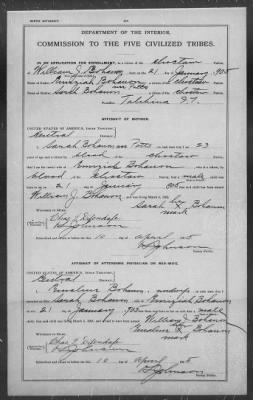 BIRTH AFFIDAVIT.
DEPARTMENT OF THE INTERIOR,
COMMISSION TO THE FIVE CIVILIZED TRIBES.
IN RE APPLICATION FOR ENROLLMENT, as a citizen of the Choctaw Nation,
of William J. Bohanon, born on the 21 day of January, 1905
Name of Father: Emiziah Bohanon a citizen of the Choctaw Nation.
nee Potts
Name of Mother: Sarah Bohanon a citizen of the Choctaw Nation.
Postoffice Talihina I.T.
AFFIDAVIT OF MOTHER.
UNITED STATES OF AMERICA, INDIAN TERRITORY,
Central District.
I, Sarah Bohanon nee Potts, on oath state that I am 23
years of age and a citizen by blood of the Choctaw Nation;
that I am the lawful wife of Emiziah Bohanon, who is a citizen, by
blood of the Choctaw Nation; that a male child was born to me
on 21 day of January, 1905, that said child has been named
William J. Bohanon, and was living March 4, 1905.
her
Sarah X Bohanon
mark
WITNESSES TO MARK:
Chas T. Difendafer
O L Johnson
Subscribed and sworn to before me this 10 day of April, 1905
O L Johnson
Notary Public.
AFFIDAVIT OF ATTENDING PHYSICIAN OR MID-WIFE.
UNITED STATES OF AMERICA, INDIAN TERRITORY,
Central District.
I, Emeline Bohanon, a midwife, on oath state that I
attended on Sarah Bohanon, wife of Emiziah Bohanon
on the 21 day of January, 1905; that there was born to her on said date a male
child; that said child was living March 4, 1905, and is said to have been named William J. Bohanon
her
Emeline X Bohanon
mark
WITNESSES TO MARK:
Chas T. Difendafer
O L Johnson
Subscribed and sworn to before me this 10 day of April, 1905
O L Johnson
Notary Public.